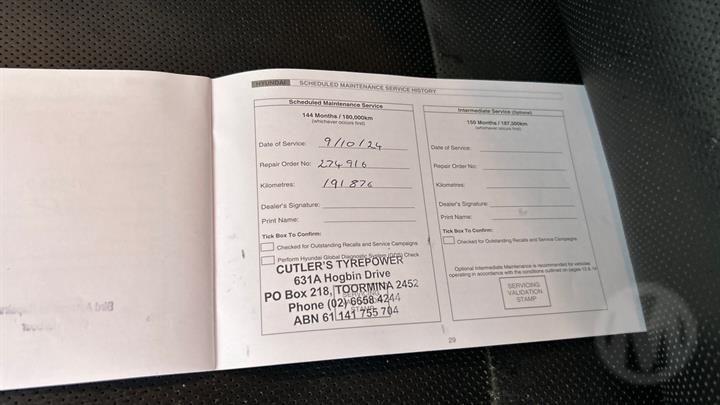 HYUNDAI SCHEDULED MAINTENANCE SERVICE HISTORY
Scheduled Maintenance Service
144 Months / 180,000km
(whichever occurs first)
Date of Service: 9/10/24
Repair Order No: 274916
Kilometres: 191876
Dealer's Signature:
Print Name:
Tick Box To Confirm:
Checked for Outstanding Recalls and Service Campaigns
Perform Hyundai Global Diagnostic System (GDS) Check
CUTLER'S TYREPOWER
631A Hogbin Drive
PO Box 218, TOORMINA 2452
Phone (02) 6658 4244
ABN 61 141 755 704
STAMP
Intermediate Service (Optional)
150 Months / 187,500km
(whichever occurs first)
Date of Service:
Repair Order No:
Kilometres:
Dealer's Signature:
Print Name:
Tick Box To Confirm:
Checked for Outstanding Recalls and Service Campaigns
Optional Intermediate Maintenance is recommended for vehicles
operating in accordance with the conditions outlined on pages 13 &
SERVICING
VALIDATION
STAMP
29